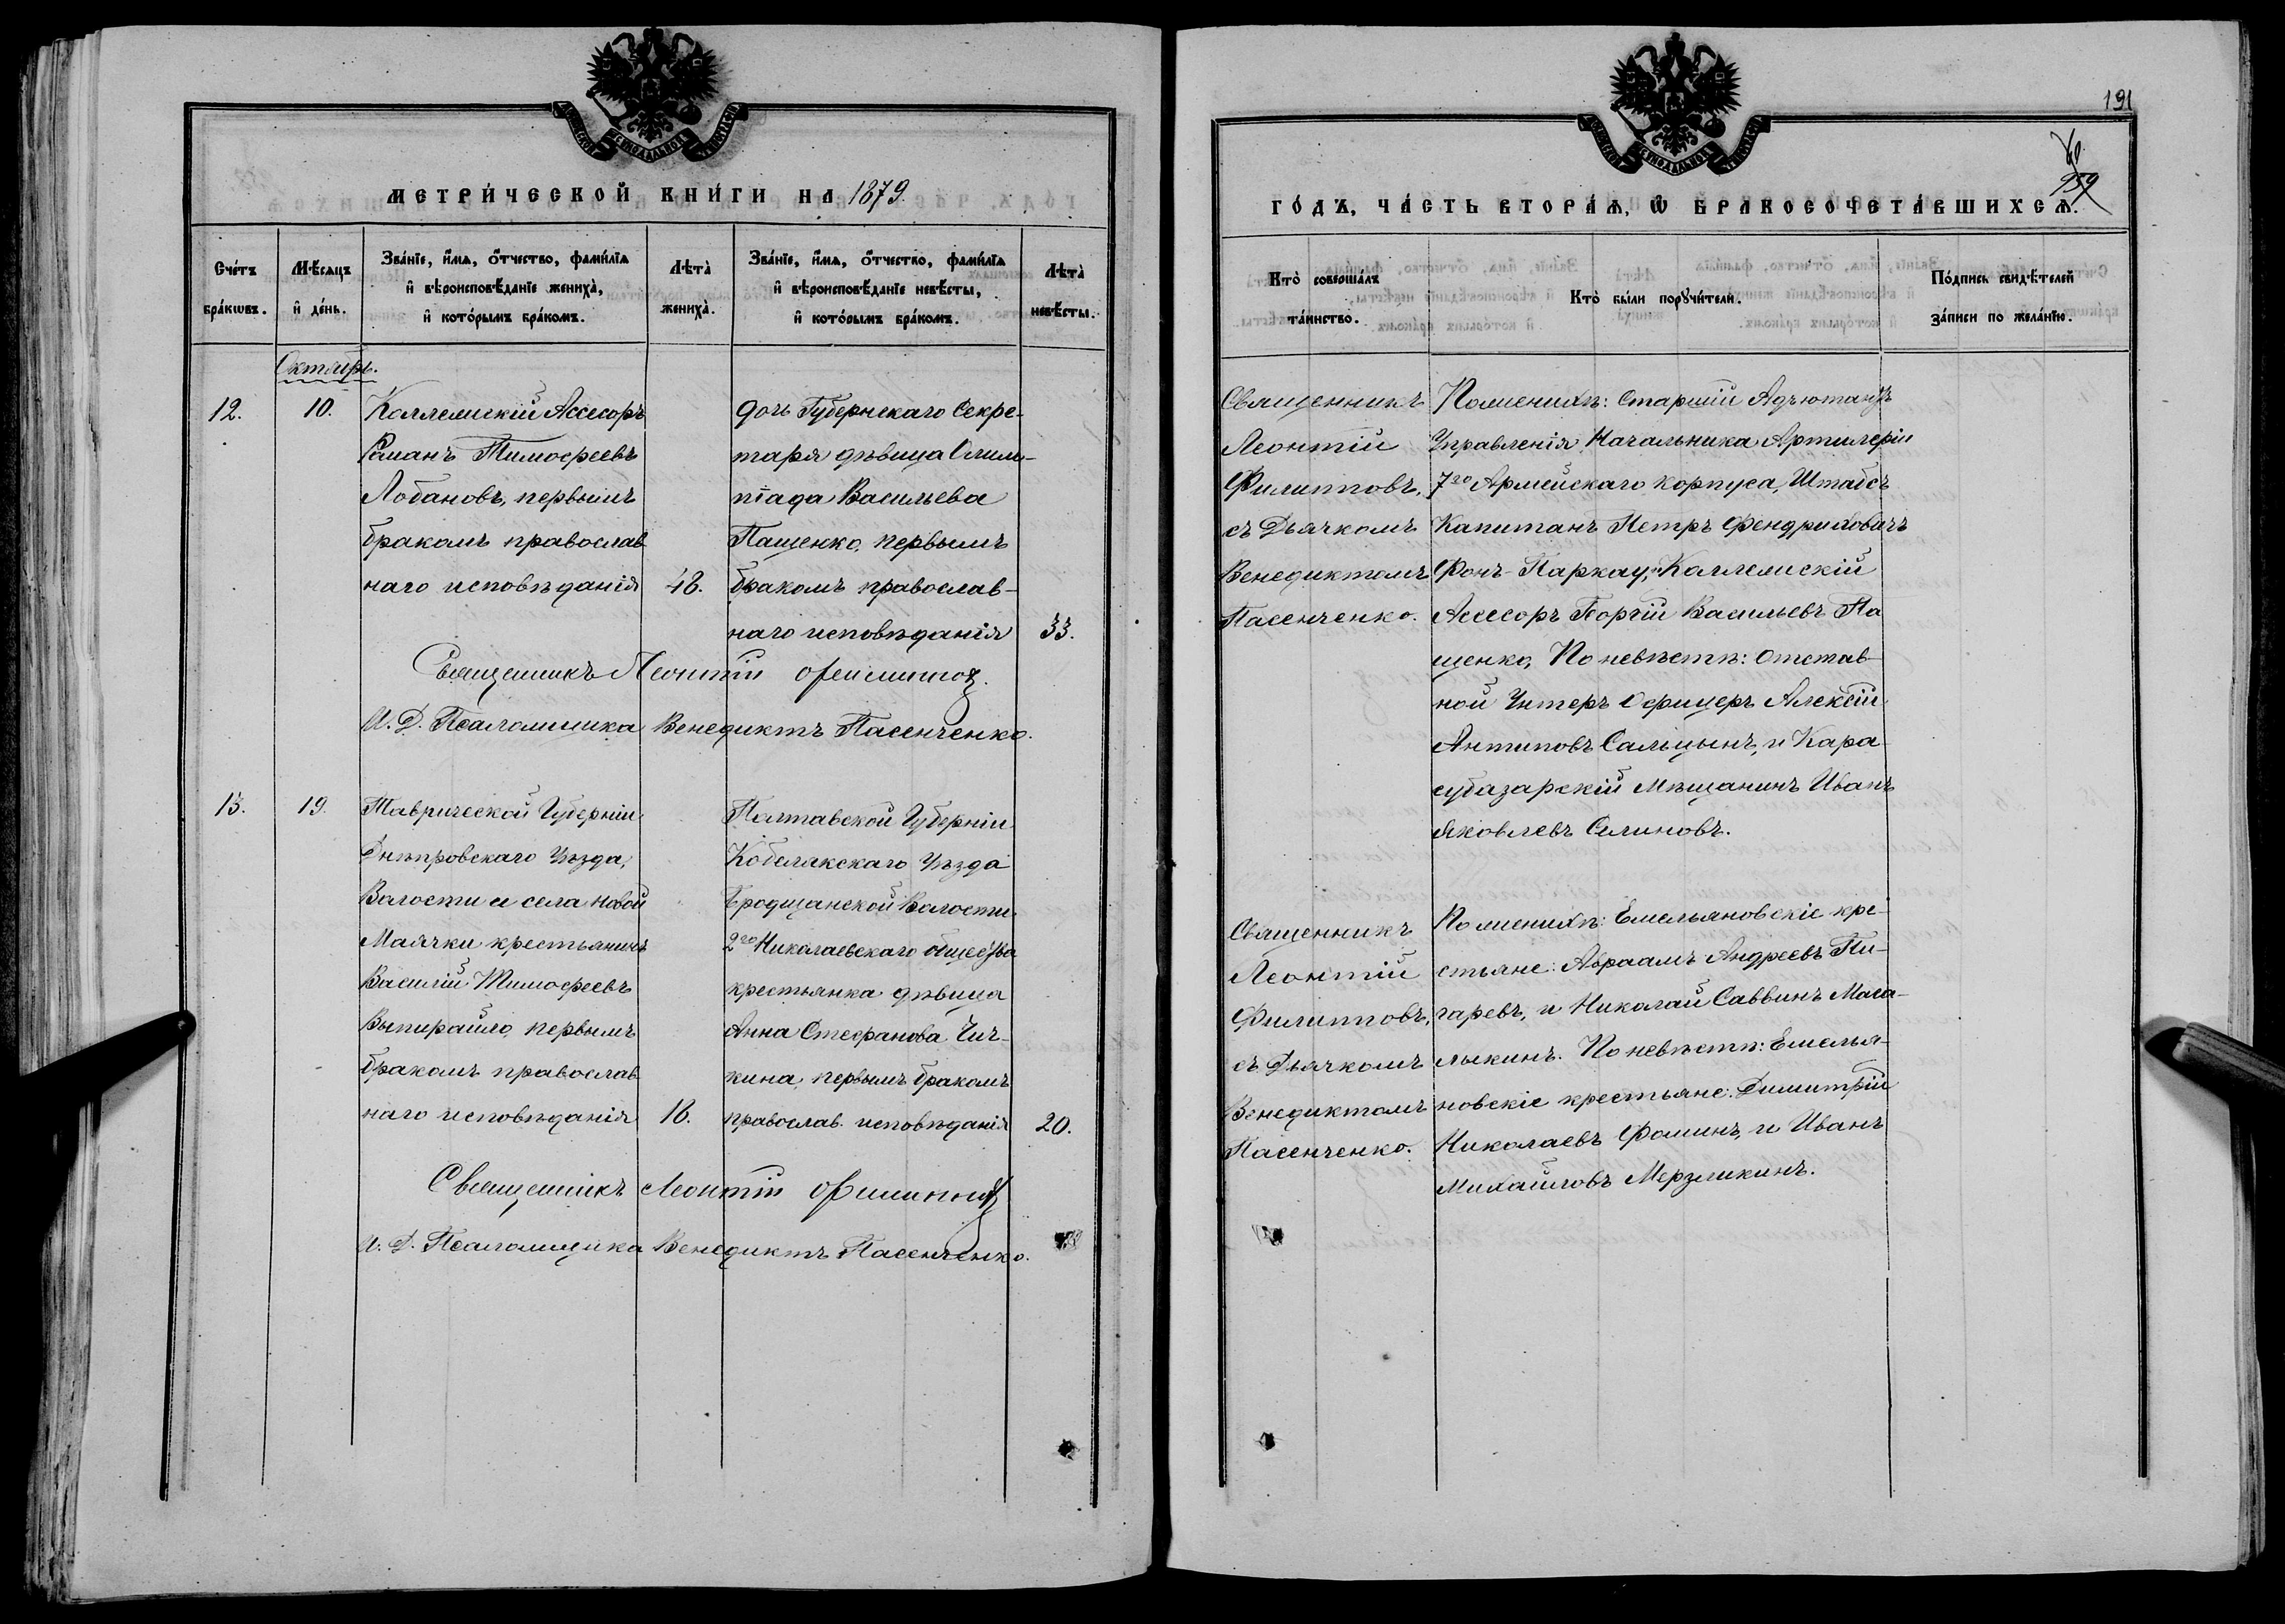 МЕТРИ́ЧЕСКОЙ КНИ́ГИ НА 1879.
Сче́тъ бра́кѡвъ.
Мѣ́сяцъ и҆ де́нь.
Зва́нїе, и҆́мя, ѻ҆́тчество, фами́лїя и҆ вѣроисповѣ́данїе жениха̀, и҆ кото́рымъ бра́комъ.
Лѣта̀ жениха̀.
Зва́нїе, и҆́мя, ѻ҆́тчество, фами́лїя и҆ вѣроисповѣ́данїе невѣ́сты, и҆ кото́рымъ бра́комъ.
Лѣта̀ невѣ́сты.
Октябрь.
12.
10.
Коллежскій Ассесоръ
Романъ Тимофеевъ
Лобановъ, первымъ
бракомъ православ
наго исповѣданія
48.
дочь Губернскаго Секре-
таря дѣвица Олим-
піада Васильева
Пащенко, первымъ
бракомъ православ-
наго исповѣданія
33.
Священникъ Леонтій Филиппов
И. Д. Псаломщика Венедиктъ Пасенченко.
13.
19.
Таврической Губерніи
Днѣпровскаго Уѣзда,
Волости и села Новой
Маячки крестьянинъ
Василій Тимофеевъ
Выпирайло, первымъ
бракомъ православ
наго исповѣданія
18.
Полтавской Губерніи
Кобелакскаго Уѣзда
Бродщанской Волости
2го Николаевскаго общества
крестьянка дѣвица
Анна Стефанова Чич-
кина, первымъ бракомъ
православ. исповѣданія
20.
Священникъ Леонтій Филиппов
И. Д. Псаломщика Венедиктъ Пасенченко.
191
159
ГО́ДЪ, ЧА́СТЬ ВТОРА́Ѧ, Ѡ҆ БРАКОСОЧЕТА́ВШИХСѦ.
Кто̀ соверша́лъ та́инство.
Кто̀ бы́ли порꙋчи́тели.
По́дпись свидѣ́телей за́писи по жела́нїю.
Священникъ
Леонтій
Филипповъ,
съ Дьячкомъ
Венедиктомъ
Пасенченко.
По женихѣ: Старшій Адъютантъ
Управленія Начальника Артилеріи
7го Армейскаго корпуса, Штабсъ
Капитанъ Петръ Фендриховичъ
Фонъ-Паркау, Коллежскій
Ассесоръ Георгій Васильевъ Па
щенко, По невѣстѣ: отстав-
ной Унтеръ Офицеръ Алексѣй
Антиповъ Сальцынъ, и Кара
субазарскій Мѣщанинъ Иванъ
Яковлевъ Селиновъ.
Священникъ
Леонтій
Филипповъ,
съ Дьячкомъ
Венедиктомъ
Пасенченко.
По женихѣ: Емельяновскіе кре-
стьяне: Авраамъ Андреевъ Пи-
гаревъ, и Николай Саввинъ Мага-
лыкинъ. По невѣстѣ: Емелья-
новскіе крестьяне: Димитрій
Николаевъ Фоминъ, и Иванъ
Михайловъ Мерзликинъ.